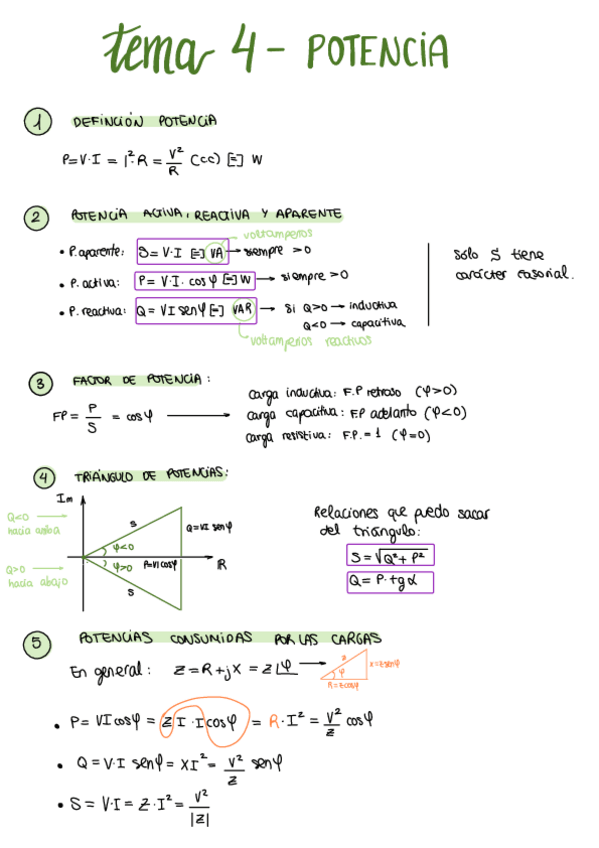 tema 4 - POTENCIA
1 DEFINCIÓN POTENCIA
P=V·I = I²·R = V²/R (CC) [=] W
2 POTENCIA ACTIVA, REACTIVA Y APARENTE
voltamperios
• P. aparente: S= V·I [=] VA → siempre >0
• P. activa: P= V·I. cos φ [=] W → siempre >0
• P. reactiva: Q = VI sen φ [=] VAR → Si Q>0 → inductiva
Q<0 → capacitiva
voltamperios reactivos
Sólo S tiene
carácter fasorial.
3 FACTOR DE POTENCIA:
FP = P/S = cos φ →
carga inductiva: F.P retraso (φ>0)
carga capacitiva: F.P adelanto (φ<0)
carga resistiva: F.P. = 1 (φ=0)
4 TRIÁNGULO DE POTENCIAS:
Im
Q<0 →
hacia arriba
S
Q=VI sen φ
φ<0
Q>0 →
hacia abajo
φ>0
P=VI cos φ
R
S
Relaciones que puedo sacar
del triángulo:
S = √Q²+P²
Q = P·tg α
5 POTENCIAS CONSUMIDAS POR LAS CARGAS
En general: Z = R+jX = Z∟φ →
Z
X=Z sen φ
φ
R=Z cos φ
• P= VI cos φ = Z I · I cos φ = R·I² = V²/Z cos φ
• Q = V·I sen φ = XI² = V²/Z sen φ
• S = V·I = Z·I² = V²/|Z|